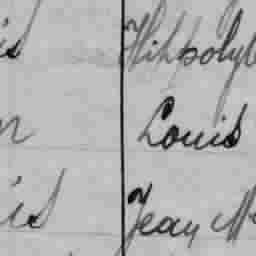 is Hippolyt
n Louis
is Jean M